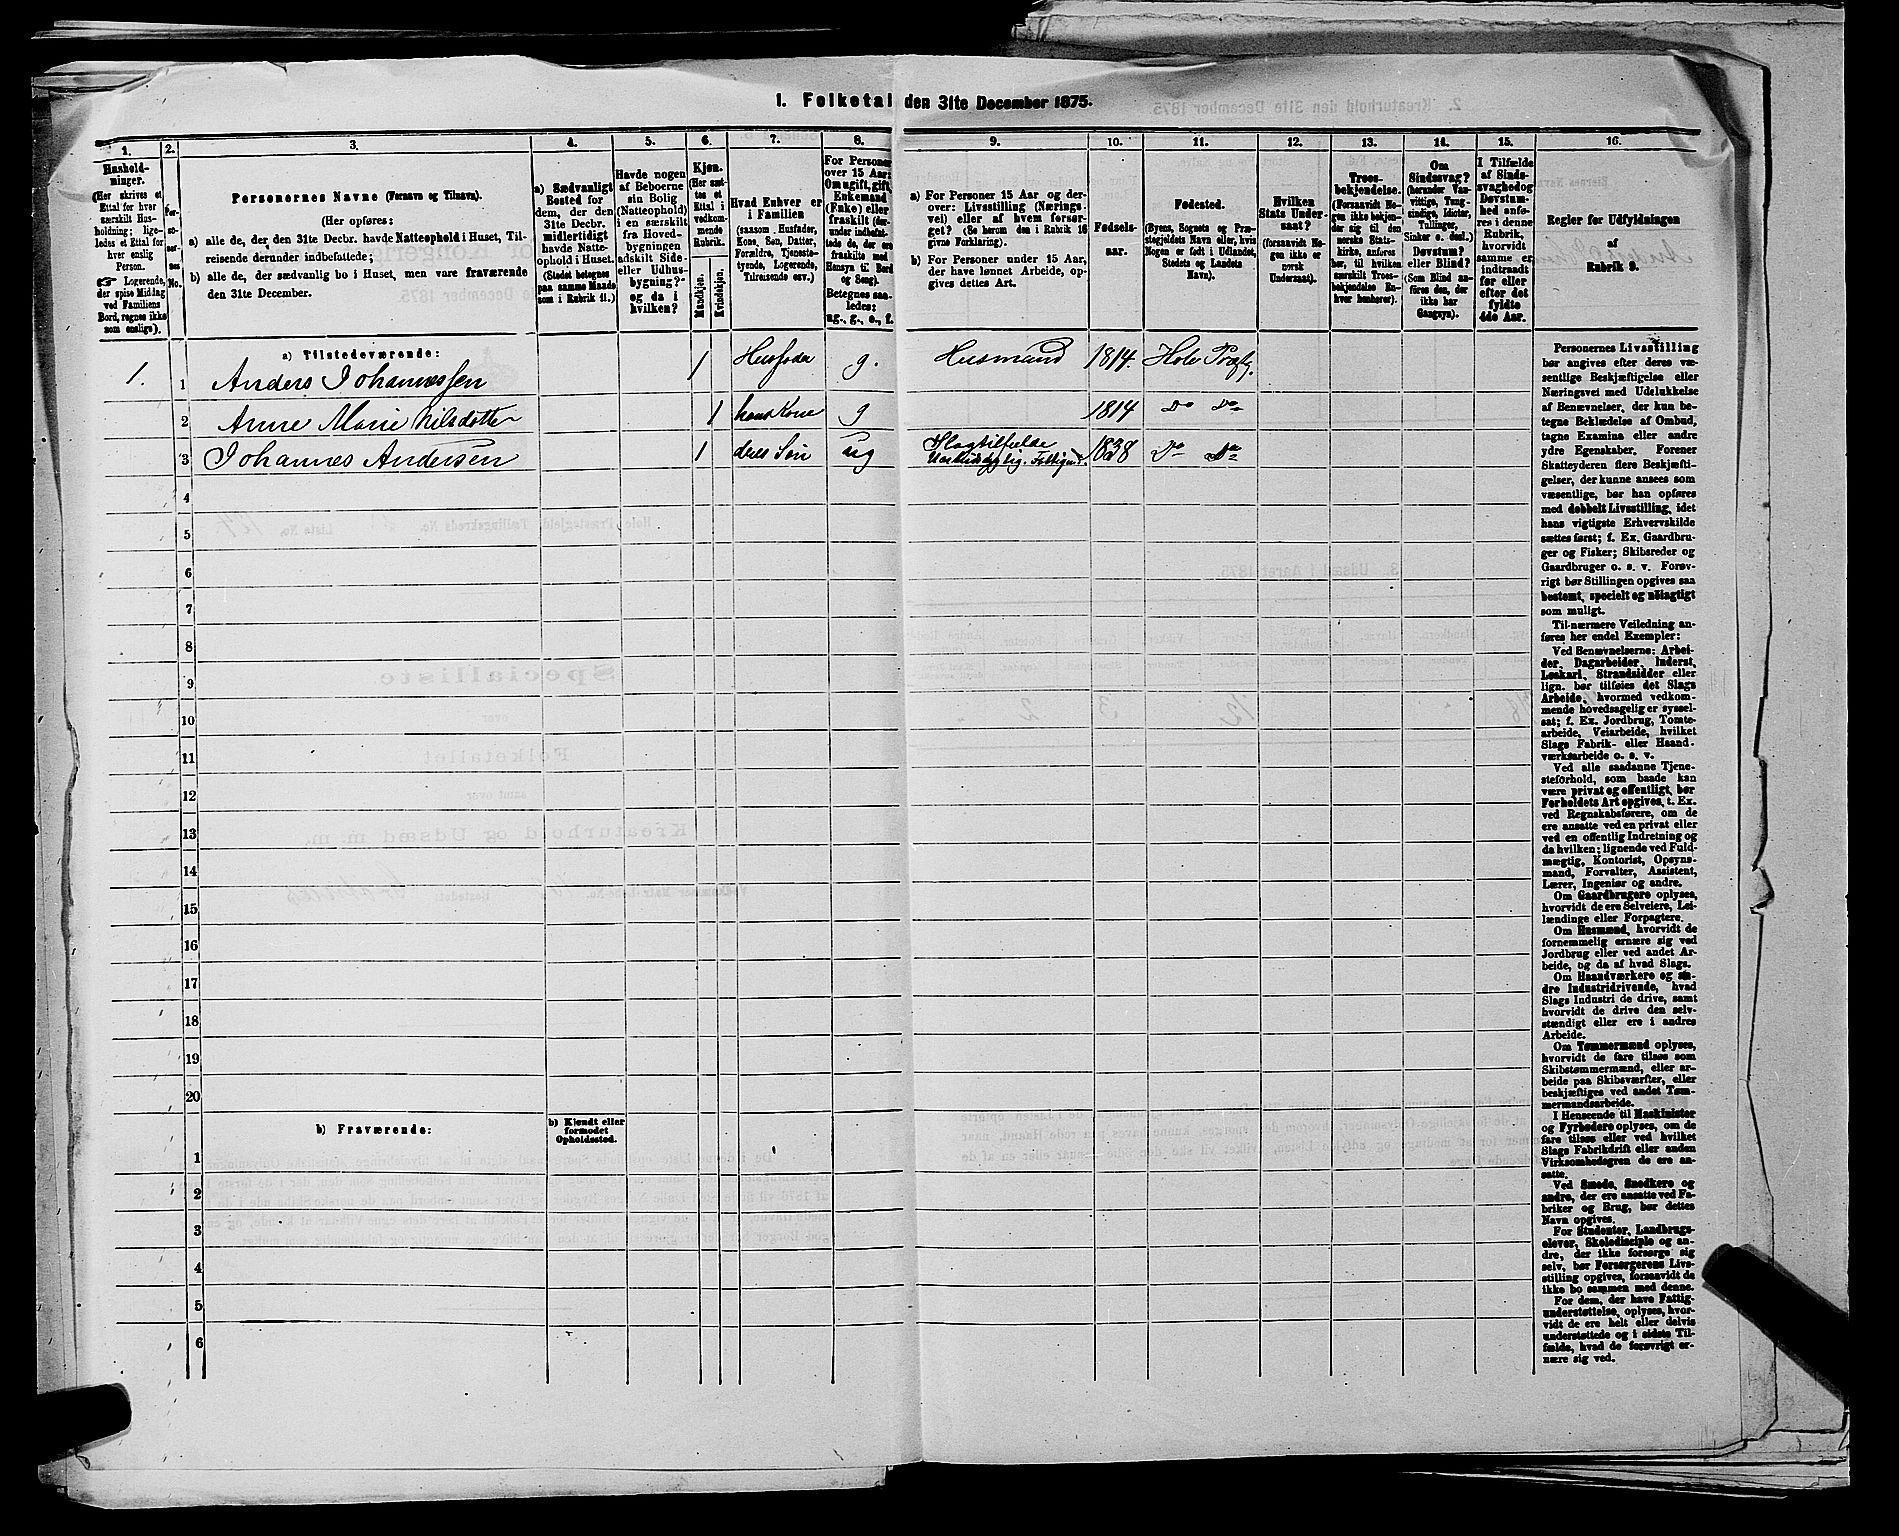 1. Folketal den 31te December 1875.
1. 2. 3. 4. 5. 6. 7. 8. 9. 10. 11. 12. 13. 14. 15. 16.
Hushold-
ninger.
(Her skrives et
Ettal for hver
særskilt Hus-
holdning; lige-
ledes et Ettal for
hver enslig
Person.
☞ Logerende,
der spise Middag
ved Familiens
Bord, regnes ikke
som enslige).
Per-
so-
ner-
nes
No.
Personernes Navne (Fornavn og Tilnavn).
(Her opføres:
a) alle de, der den 31te Decbr. havde Natteophold i Huset, Til-
reisende derunder indbefattede;
b) alle de, der sædvanlig bo i Huset, men vare fraværende
den 31te December.
a) Sædvanligt
Bosted for
dem, der den
31te Decbr.
midlertidigt
havde Natte-
ophold i Huset.
(Stedet betegnes
paa samme Maade
som i Rubrik 11.)
Havde nogen
af Beboerne
sin Bolig
(Natteophold)
i en særskilt
fra Hoved-
bygningen
adskilt Side-
eller Udhus-
bygning?
og da i
hvilken?
Kjøn.
(Her sæt-
tes et
Ettal i
vedkom-
mende
Rubrik.
Mandkjøn.
Kvindekjøn.
Hvad Enhver er
i Familien
(saasom, Husfader,
Kone, Søn, Datter,
Forældre, Tjeneste-
tyende, Logerende,
Tilreisende osv.)
For Personer
over 15 Aar:
Om ugift, gift,
Enkemand
(Enke) eller
fraskilt (her-
under indbefat-
tede de, der ere
fraskilte med
Hensyn til Bord
og Seng).
Betegnes saa-
ledes:
ug., g., e., f.
a) For Personer 15 Aar og der-
over: Livsstilling (Nærings-
vei) eller af hvem forsør-
get? (Se herom den i Rubrik 16
givne Forklaring).
b) For Personer under 15 Aar,
der have lønnet Arbeide, op-
gives dettes Art.
Fødsels-
aar.
Fødested.
(Byens, Sognets og Præ-
stegjeldets Navn eller, hvis
Nogen er født i Udlandet,
Stedets og Landets
Navn).
Hvilken
Stats Under-
saat?
(forsaavidt No-
gen ikke er
norsk
Undersaat).
Troes-
bekjendelse.
(Forsaavidt No-
gen ikke bekjen-
der sig til den
norske Stats-
kirke, anføres
her, til hvilken
særskilt Troes-
bekjendelse En-
hver henhører).
Om
Sindssvag?
(herunder Van-
vittige, Tung-
sindige, Idioter,
Tullinger,
Sinker o. desl.)
Døvstum?
eller Blind?
(Som Blind an-
føres den, der
ikke har
Gangsyn).
I Tilfælde
af Sinds-
svaghed og
Døvstum-
hed anfø-
res i denne
Rubrik,
hvorvidt
samme er
indtraadt
før eller
efter det
fyldte
4de Aar.
Regler for Udfyldningen
af
Rubrik 9.
a) Tilstedeværende:
1. 1 Anders Johannessen 1 Husfader g. Husmand 1814. Hole Præstg.
2 Anne Marie Nilsdotter 1 hans Kone g 1814 Do Do
3 Johannes Andersen 1 deres Søn ug Slagtilfælde 1838 Do Do
4
5
6
7
8
9
10
11
12
13
14
15
16
17
18
19
20
b) Fraværende:
b) Kjendt eller
formodet
Opholdssted.
1
2
3
4
5
6
Personernes Livsstilling
bør angives efter deres væ-
sentlige Beskjæftigelse eller
Næringsvei med Udelukkelse
af Benævnelser, der kun be-
tegne Beklædelse af Ombud,
tagne Examina eller andre
ydre Egenskaber. Forener
Skatteyderen flere Beskjæfti-
gelser, der kunne ansees som
væsentlige, bør han opføres
med dobbelt Livsstilling, idet
hans vigtigste Erhvervskilde
sættes først; f. Ex. Gaardbru-
ger og Fisker; Skibsreder og
Gaardbruger o. s. v. Forøv-
rigt bør Stillingen opgives saa
bestemt, specielt og nøiagtigt
som muligt.
Til nærmere Veiledning an-
føres her endel Exempler:
Ved Benævnelserne: Arbei-
der, Dagarbeider, Inderst,
Løskarl, Strandsidder eller
lign. bør tilføies det Slags
Arbeide, hvormed vedkom-
mende hovedsagelig er syssel-
sat; f. Ex. Jordbrug, Tomte-
arbeide, Veiarbeide, hvilket
Slags Fabrik- eller Haand-
værksarbeide o. s. v.
Ved alle saadanne Tjene-
steforhold, som baade kan
være privat og offentligt, bør
Forholdets Art opgives, t. Ex.
ved Regnskabsførere, om de
ere ansatte ved en privat eller
ved en offentlig Indretning og
da hvilken; lignende ved Fuld-
mægtig, Kontorist, Opsyns-
mand, Forvalter, Assistent,
Lærer, Ingeniør og andre.
Om Gaardbrugere oplyses,
hvorvidt de ere Selveiere, Lei-
lændinge eller Forpagtere.
Om Husmænd, hvorvidt de
fornemmelig ernære sig ved
Jordbrug eller ved andet Ar-
beide, og da af hvad Slags.
Om Haandværkere og an-
dre Industridrivende, hvad
Slags Industri de drive, samt
hvorvidt de drive den selv-
stændigt eller ere i andres
Arbeide.
Om Tømmermænd oplyses,
hvorvidt de fare tilsøs som
Skibstømmermænd, eller ar-
beide paa Skibsværfter, eller
beskjæftiges ved andet Tøm-
mermandsarbeide.
I Henseende til Maskinister
og Fyrbødere oplyses, om de
fare tilsøs eller ved hvilket
Slags Fabrikdrift eller anden
Virksomhedsgren de ere an-
satte.
Ved Smede, Snedkere og
andre, der ere ansatte ved Fa-
briker og Brug, bør dettes
Navn opgives.
For Studenter, Landbrugs-
elever, Skoledisciple og an-
dre, der ikke forsørge sig
selv, bør Forsørgerens Livs-
stilling opgives, forsaavidt de
ikke bo sammen med denne.
For dem, der have Fattig-
understøttelse, oplyses, hvor-
vidt de ere helt eller delvis
understøttede og i sidste Til-
fælde, hvad de forøvrigt er-
nære sig ved.